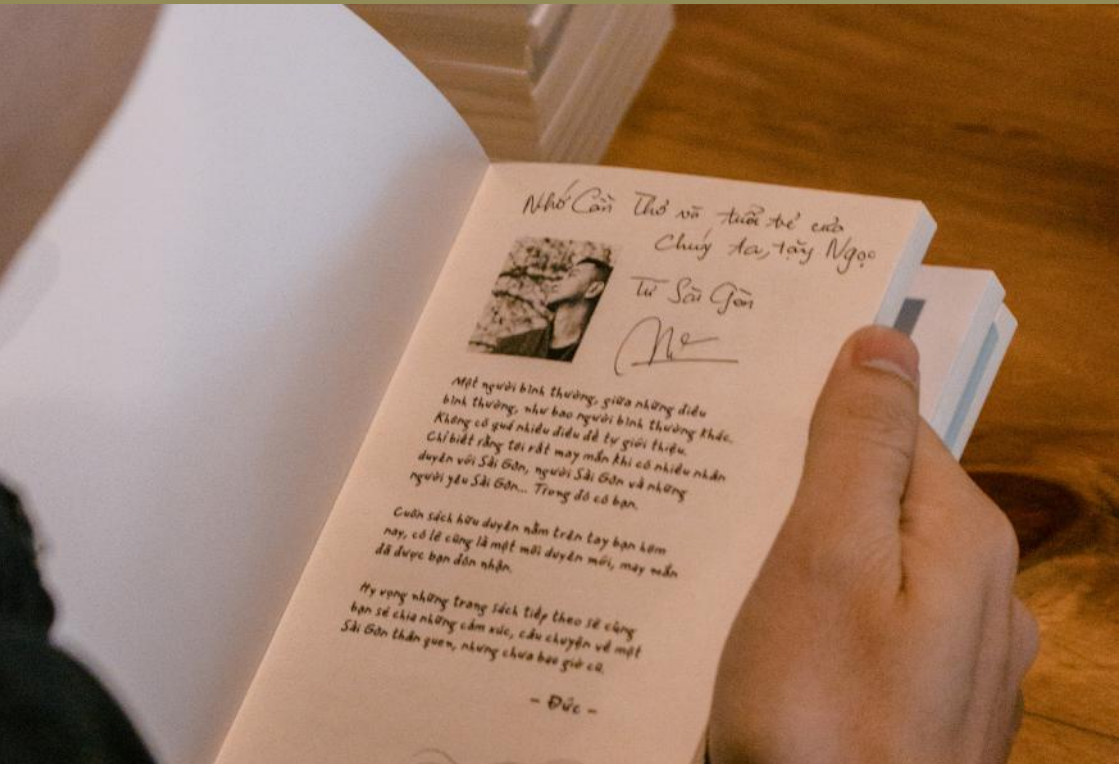 Nhớ Cần Thơ và tuổi trẻ của
chúy ta, tặng Ngọc
Từ Sài Gòn
Một người bình thường, giữa những điều
bình thường, như bao người bình thường khác.
Không có quá nhiều điều để tự giới thiệu.
Chỉ biết rằng tôi rất may mắn khi có nhiều nhân
duyên với Sài Gòn, người Sài Gòn và những
người yêu Sài Gòn... Trong đó có bạn.
Cuốn sách hữu duyên nằm trên tay bạn hôm
nay, có lẽ cũng là một mối duyên mới, may mắn
đã được bạn đón nhận.
Hy vọng những trang sách tiếp theo sẽ cùng
bạn sẻ chia những cảm xúc, câu chuyện về một
Sài Gòn thân quen, nhưng chưa bao giờ cũ.
- Đức -